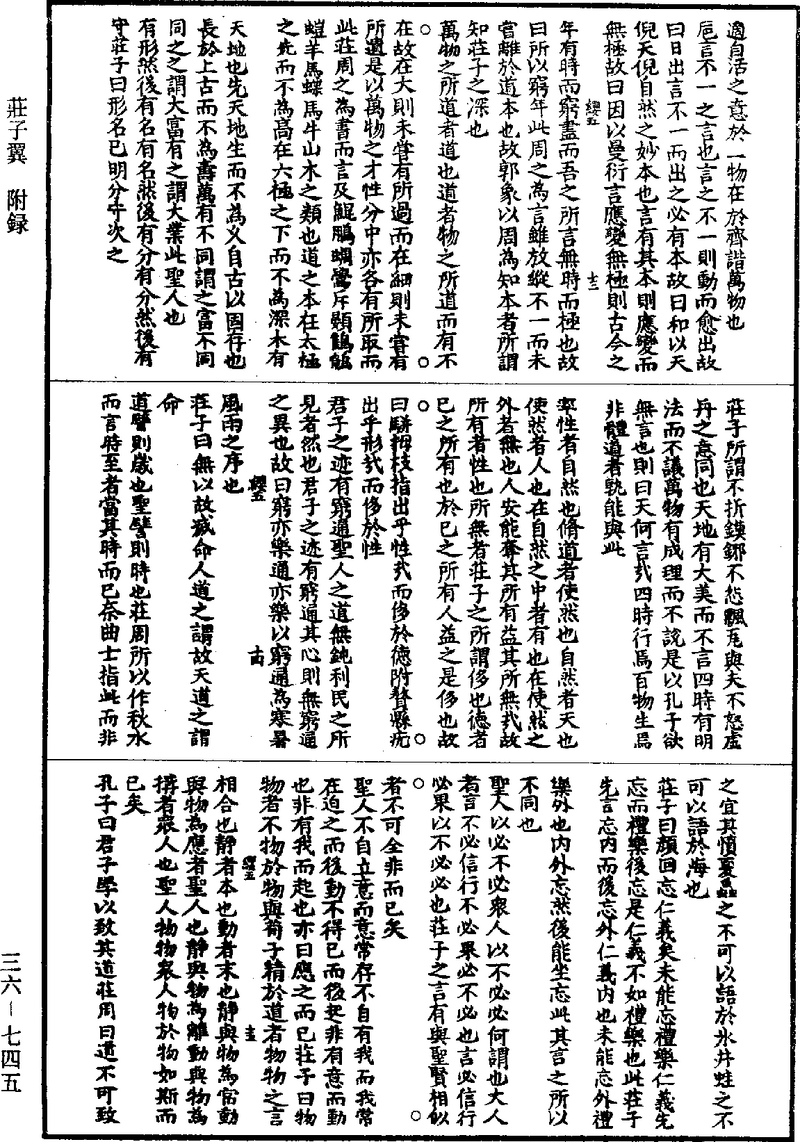 適自活之意於一物在於齊諧萬物也
巵言不一之言也言之不一則動而愈出故
曰日出言不一而出之必有本故曰和以天
倪天倪自然之妙本也言有其本則應變而
無極故曰因以曼衍言應變無極則古今之
年有時而窮盡而吾之所言無時而極也故
曰所以窮年此周之為言雖放縱不一而未
嘗離於道本也故郭象以周為知本者所謂
知莊子之深也
萬物之所道者道也道者物之所道而有不
在故在大則未嘗有所過而在細則未嘗有
所遺是以萬物之才性分中亦各有所取而
此莊周之為書而言及鯤鵬蜩鷽斥鷃鶺鴒
螘羊馬蝶馬牛山木之類也道之本在太極
之先而不為高在六極之下而不為深木有
天地也先天地生而不為乆自古以固存也
長於上古而不為壽萬有不同謂之富不同
同之之謂大富有之謂大業此聖人也
有形然後有名有名然後有分有分然後有
守莊子曰形名已明分守次之
莊子所謂不折鏌鎁不怨飄瓦與夫不怒虛
舟之意同也天地有大美而不言四時有明
法而不議萬物有成理而不說是以孔子欲
無言也則曰天何言哉四時行焉百物生焉
非體道者孰能與此
率性者自然也脩道者使然也自然者天也
使然者人也在自然之中者有也在使然之
外者無也人安能奪其所有益其所無哉故
所有者性也所無者莊子之所謂侈也德者
已之所有也於已之所有人益之是侈也故
曰駢拇枝指出乎性哉而侈於德附贅縣疣
出乎形哉而侈於性
君子之迹有窮通聖人之道無鈍利民之所
見者然也君子之迹有窮通其心則無窮通
之異也故曰窮亦樂通亦樂以窮通為寒暑
風雨之序也
莊子曰無以故滅命人道之謂故天道之謂
命
道譬則歲也聖譬則時也莊周所以作秋水
而言時至者當其時而已奈曲士指此而非
之宜其憤夏蟲之不可以語於氷井蛙之不
可以語於海也
莊子曰顏回忘仁義矣未能忘禮樂仁義先
忘而禮樂後忘是仁義不如禮樂也此莊子
先言忘內而後忘外仁義內也未能忘外禮
樂外也內外忘然後能坐忘此其言之所以
不同也
聖人以必不必衆人以不必必何謂也大人
者言不必信行不必果必不必也言必信行
必果以不必必也莊子之言有與聖賢相似
者不可全非而已矣
聖人不自立意而意常存不自有我而我常
在迫之而後動不得已而後起非有意而動
也非有我而起也亦曰應之而已莊子曰物
物者不物於物與荀子精於道者物物之言
相合也靜者本也動者末也靜與物為常動
與物為應者聖人也靜與物為離動與物為
搆者衆人也聖人物物衆人物於物如斯而
已矣
孔子曰君子學以致其道莊周曰道不可致
莊子翼　附録
三六－七四五